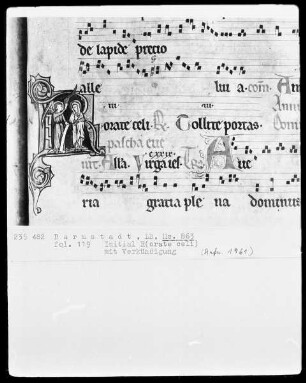 de lapide precio
alle lui a. com̄ An
orate celi. Tollite portas.
Alla. Virga ies. Aue
ria gracia ple na dominus
235 488 Darmstadt, LB, Hs. 865
fol. 119 Initial R(orate celi)
mit Verkündigung (Aufn. 1961)